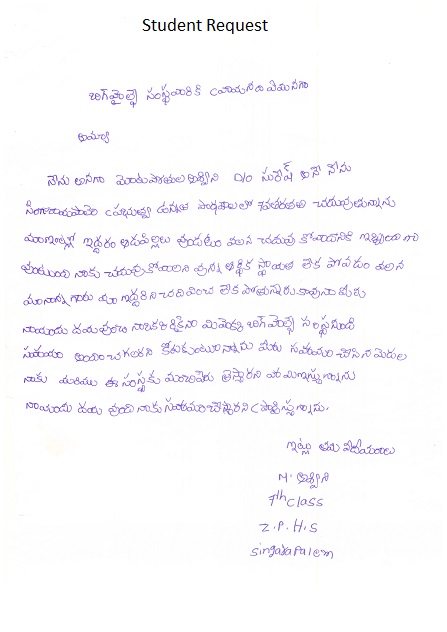 Student Request
బిగ్‌హెల్ప్ సంస్థవారికి వ్రాయునది ఏమనగా
అయ్యా
నేను అనగా అశ్విని D/o సురేష్ అనే నేను
సింగరాయపాలెం ఉన్నత పాఠశాలలో 7వతరగతి చదువుతున్నాను
మాఇంట్లో ఇద్దరం ఆడపిల్లలు వుండటం వలన చదువు కోవడానికి ఇబ్బందిగా
వుంటుంది నాకు చదువుకోవాలని వున్నా ఆర్థిక స్థోమత లేక పోవడం వలన
మానాన్న గారు మా ఇద్దరిని చదివించ లేక పోతున్నారు కావున మీరు
నాయందు దయవుంచి మీయొక్క బిగ్‌హెల్ప్ సంస్థనుండి
సహాయం కోరుకుంటున్నాను మీరు సహాయం చేసిన
నాకు మరియు ఈ సంస్థకు మంచిపేరు తెస్తానని హామిఇస్తున్నాను
నాయందు దయ వుంచి నాకు సహాయంచేస్తారని ప్రార్థిస్తున్నాను.
ఇట్లు తమ విధేయురాలు
M. అశ్విని
7th class
Z.P.H.S
Singarapalem